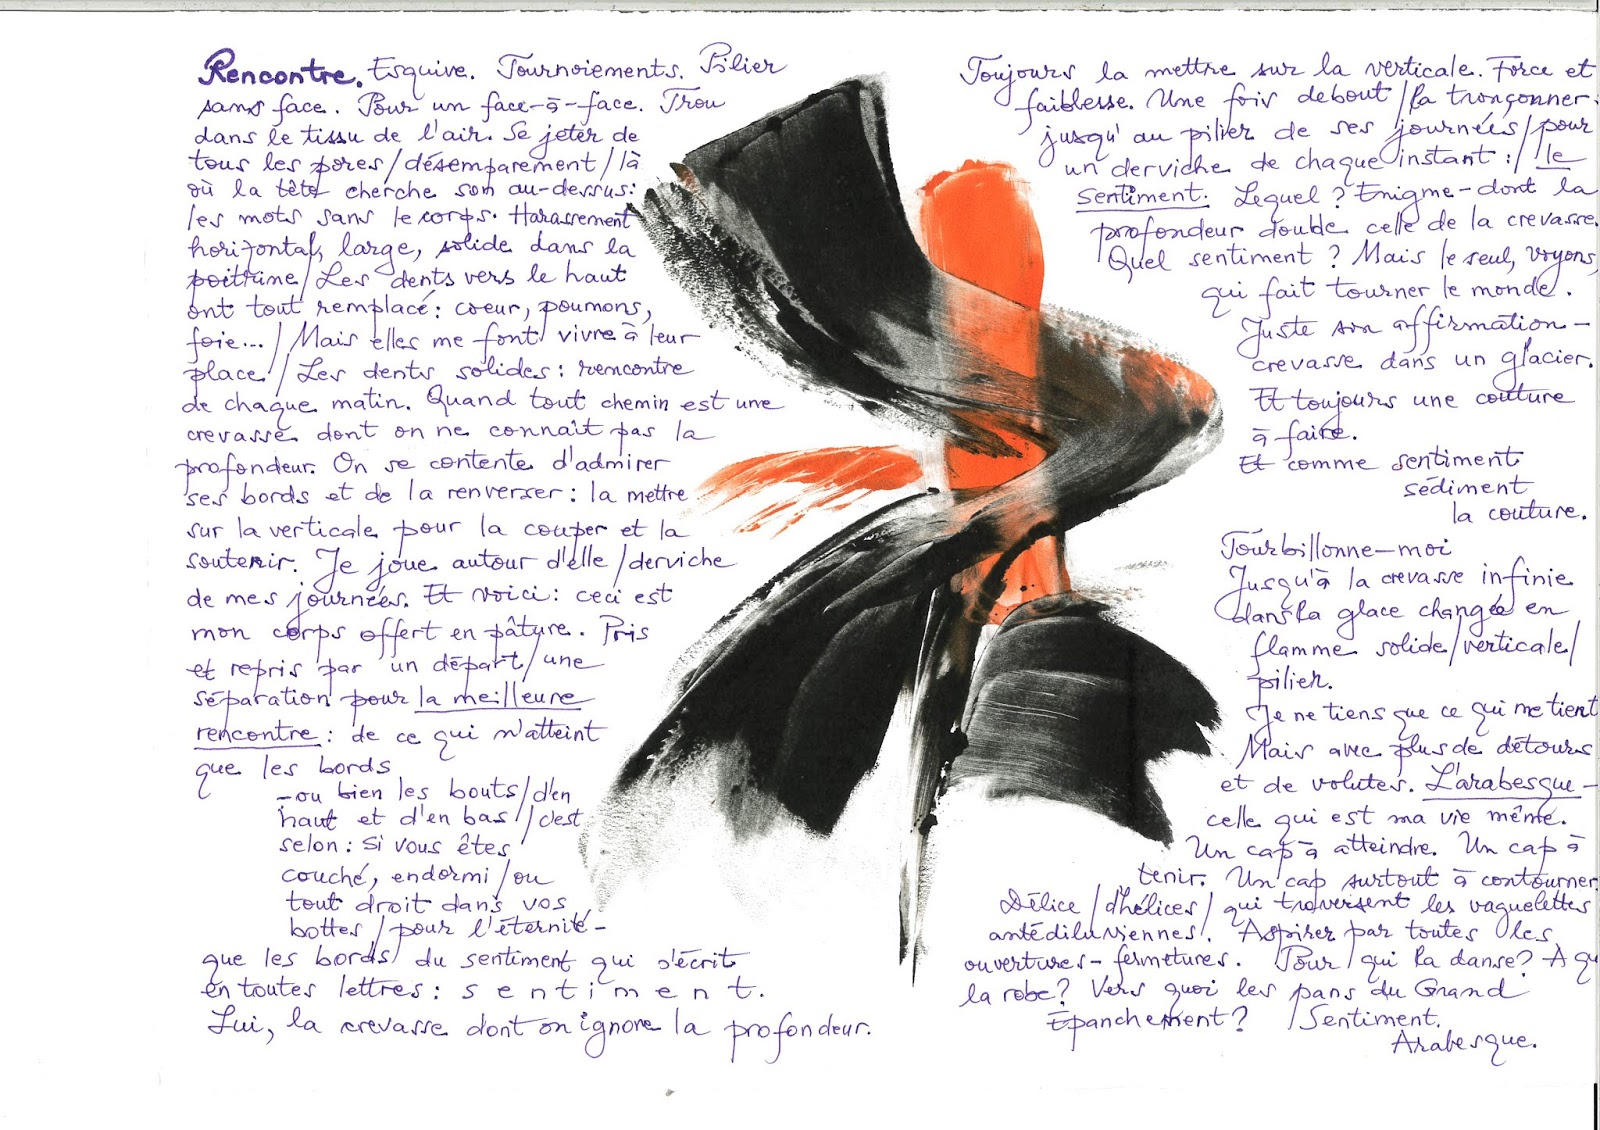 Rencontre. Esquive. Tournoiements. Pilier
sans face. Pour un face-à-face. Trou
dans le tissu de l'air. Se jeter de
tous les pores/désemparement/là
où la tête cherche son au-dessus:
les mots sans le corps. Harassement
horizontal, large, solide dans la
poitrine/Les dents vers le haut
ont tout remplacé: coeur, poumons,
foie.../Mais elles me font vivre à leur
place/Les dents solides: rencontre
de chaque matin. Quand tout chemin est une
crevasse dont on ne connaît pas la
profondeur. On se contente d'admirer
ses bords et de la renverser: la mettre
sur la verticale pour la couper et la
soutenir. Je joue autour d'elle/derviche
de mes journées. Et voici: ceci est
mon corps offert en pâture. Pris
et repris par un départ/une
séparation pour la meilleure
rencontre: de ce qui n'atteint
que les bords
-ou bien les bouts/d'en
haut et d'en bas/c'est
selon: si vous êtes
couché, endormi/ou
tout droit dans vos
bottes/pour l'éternité-
que les bords du sentiment qui s'écrit
en toutes lettres: s e n t i m e n t.
Lui, la crevasse dont on ignore la profondeur.
Toujours la mettre sur la verticale. Force et
faiblesse. Une fois debout/la tronçonner
jusqu'au pilier de ses journées/pour
un derviche de chaque instant:/le
sentiment. Lequel? Enigme-dont la
profondeur double celle de la crevasse.
Quel sentiment? Mais le seul, voyons,
qui fait tourner le monde.
Juste son affirmation-
crevasse dans un glacier.
Et toujours une couture
à faire.
Et comme sentiment
sédiment
la couture.
Tourbillonne-moi
Jusqu'à la crevasse infinie
dans la glace changée en
flamme solide/verticale/
pilier.
Je ne tiens que ce qui me tient
Mais avec plus de détours
et de volutes. L'arabesque-
celle qui est ma vie même.
Un cap à atteindre. Un cap à
tenir. Un cap surtout à contourner
Délice/d'hélices/qui traversent les vaguelettes
antédiluviennes. Aspirer par toutes les
ouvertures-fermetures. Pour qui la danse? A qu
la robe? Vers quoi les pans du Grand
Epanchement? /Sentiment.
Arabesque.